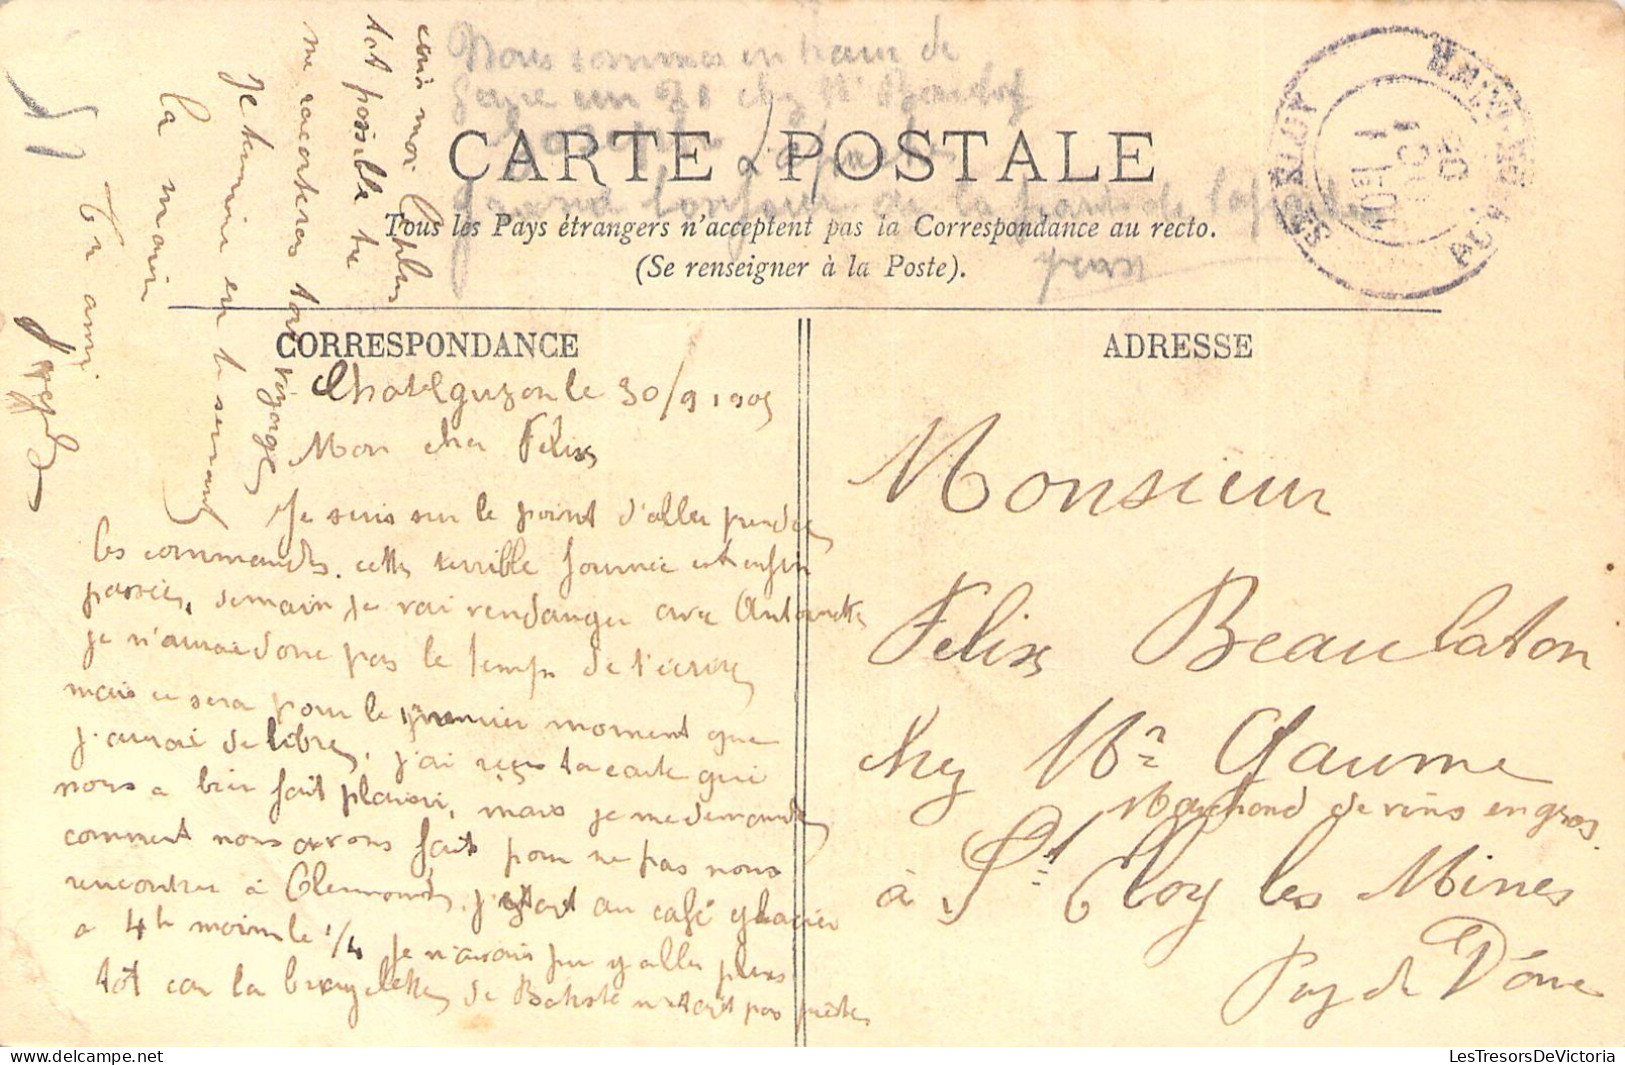 Nous sommes en train de
faire un
CARTE POSTALE
Grand bonjour de la part de
Tous les Pays étrangers n'acceptent pas la Correspondance au recto.
(Se renseigner à la Poste).
CORRESPONDANCE
Chatelguzon le 30/9 1905
Mon cher Felix
Je suis sur le point d'aller prendre
les commandes. cette terrible journée est enfin
passée, demain je vai vendanger avec Antoinette
je n'aurai donc pas le temps de t'écrire
mais ce sera pour le premier moment que
j'aurai de libre, j'ai reçu ta carte qui
nous a bien fait plaisir, mais je me demande
comment nous avons fait pour ne pas nous
rencontrer à Clermond, j'etait au café glacier
a 4h moins le 1/4 je n'avais pu y aller plus
tôt car la bicyclette de Batiste n'était pas prête
écris moi le plus
tot possible tu
me raconteras ton voyage
Je termine en te serrant
la main
Ton ami
ADRESSE
Monsieur
Felix Beaulaton
chez Mr Gaume
Marchand de vins en gros
à St Eloy les Mines
Puy de Dôme
LesTresorsDeVictoria